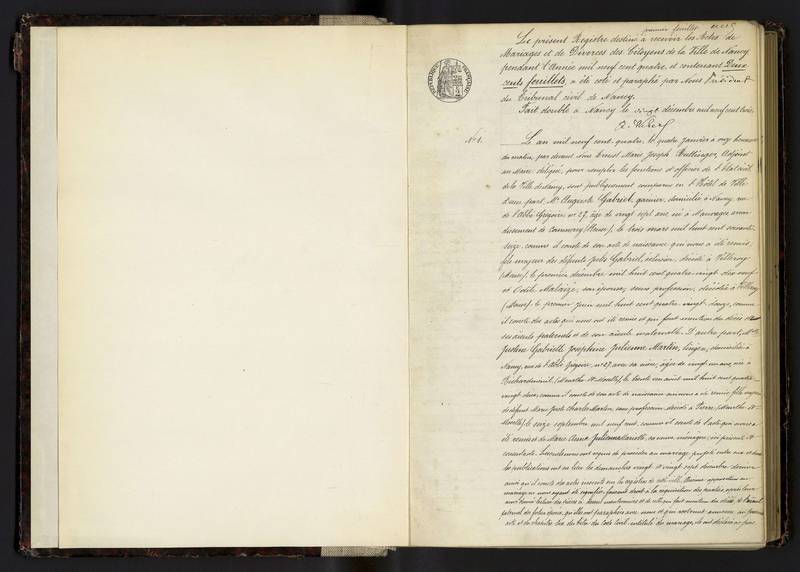 premier feuillet
Le présent Registre destiné à recevoir les Actes de
Mariages et de Divorces des Citoyens de la Ville de Nancy
pendant l'Année mil neuf cent quatre, et contenant Deux
cents feuillets, a été coté et paraphé par Nous Président
du Tribunal civil de Nancy.
Fait double à Nancy le vingt décembre mil neuf cent trois.
N° 1.
L'an mil neuf cent quatre, le quatre janvier à onze heures
du matin, par devant Nous Ernest Marie Joseph Adjoint
au Maire délégué, pour remplir les fonctions d'officier de l'État civil
de la Ville de Nancy, sont publiquement comparus en l'Hôtel de Ville
d'une part, Mr Auguste Gabriel, garnier, domicilié à Nancy rue
de l'Abbé Grégoire n° 27, âgé de vingt sept ans, né à Mauvages, arron-
dissement de Commercy (Meuse), le trois mars mil huit cent soixante
seize, comme il conste de son acte de naissance qui nous a été remis,
fils majeur des défunts Jules Gabriel, éclusier, décédé à Villeroy
(Meuse), le premier décembre mil huit cent quatre vingt dix neuf
et Odile Malaizé, son épouse, sans profession, décédée à Villeroy
(Meuse), le premier juin mil huit cent quatre vingt douze, comme
il conste des actes qui nous ont été remis et qui font mention du décès de
ses aïeuls paternels et de son aïeule maternelle. D'autre part, Mlle
Justine Gabrielle Joséphine Julienne Martin, lingère, domiciliée à
Nancy, rue de l'Abbé Grégoire, n° 27 avec sa mère, âgée de vingt un ans, née à
Richardménil (Meurthe et Moselle), le trente un août mil huit cent quatre
vingt deux, comme il conste de son acte de naissance qui nous a été remis, fille majeure
de défunt Marie Juste Charles Martin, sans profession, décédé à Pierre (Meurthe et
Moselle), le seize septembre mil neuf cent, comme il conste de l'acte qui nous a
été remis et de Marie Anne Julienne sa veuve, ménagère, ici présente et
consentante. Lesquels nous ont requis de procéder au mariage projeté entre eux et dont
les publications ont eu lieu les dimanches vingt et vingt sept décembre dernier
ainsi qu'il conste des actes inscrits sur les registres de cette ville. Aucune opposition au
mariage ne nous ayant été signifiée faisant droit à la réquisition des parties, après leur
avoir donné lecture des pièces mentionnées et de celle qui fait mention du décès de